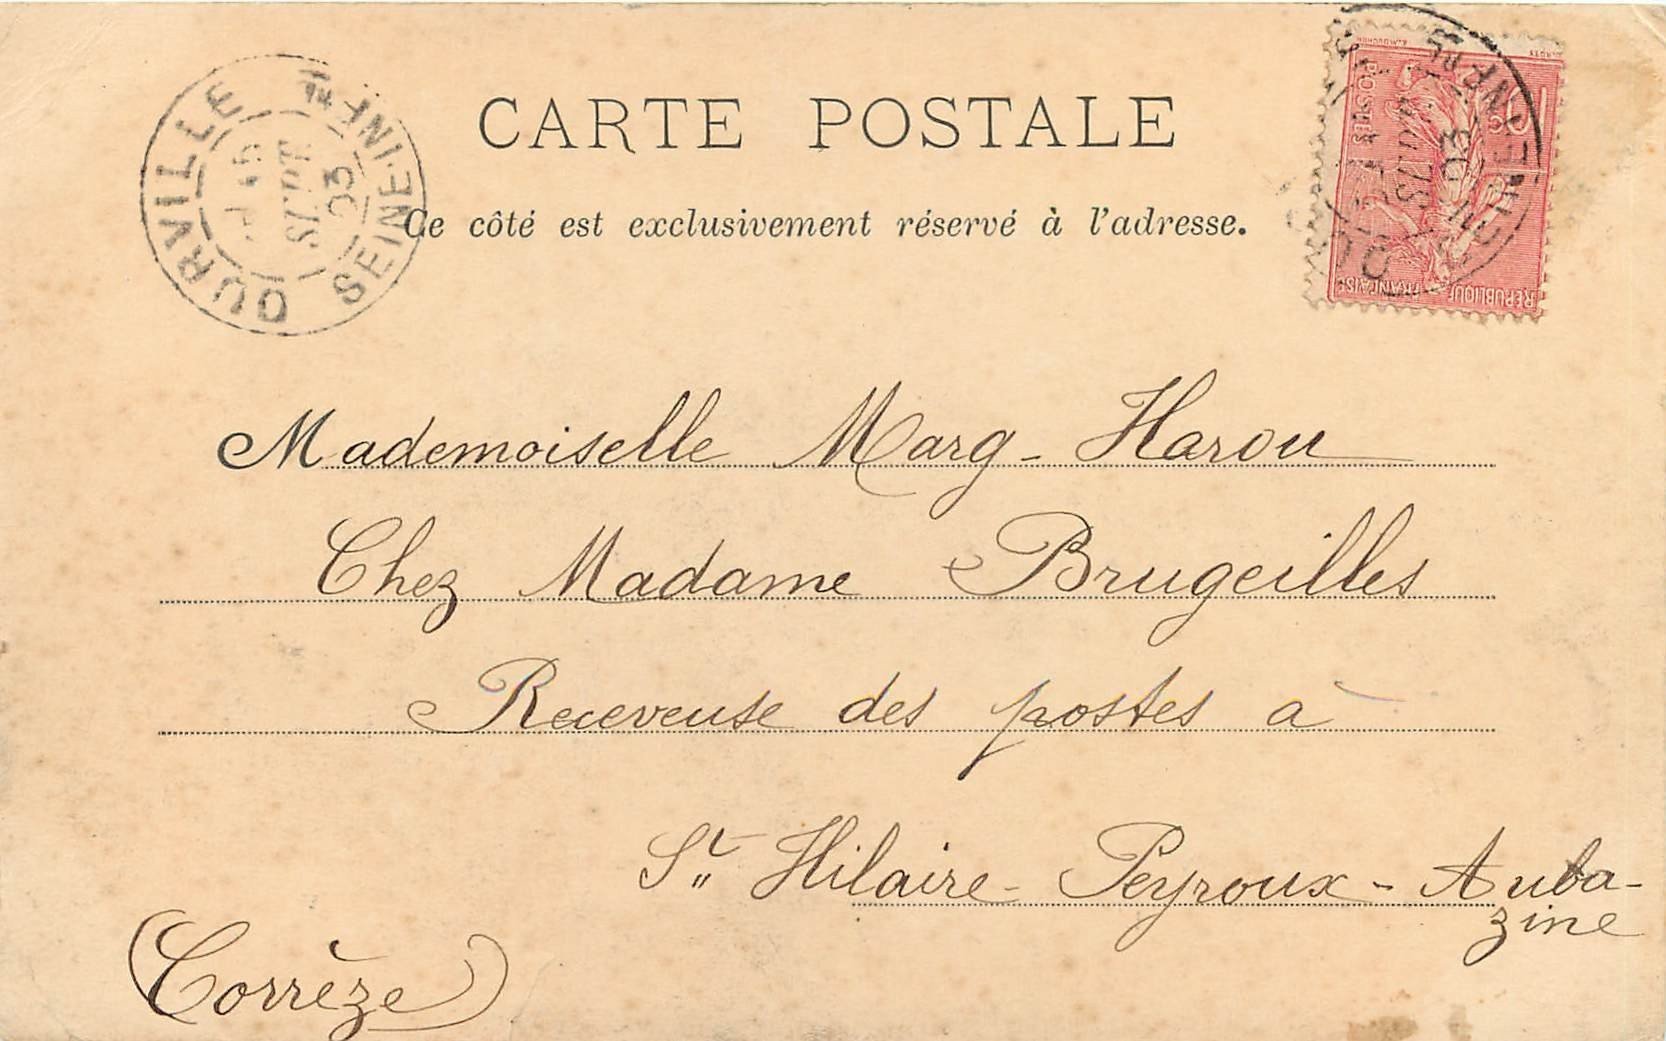 CARTE POSTALE
Ce côté est exclusivement réservé à l'adresse.
OURVILLE
SEINE-INFRE
SEPT
03
10
POSTES
REPUBLIQUE FRANÇAISE
SEPT
03
Mademoiselle Marg- Harou
Chez Madame Brugeilles
Receveuse des postes à
St Hilaire-Peyroux-Auba-
zine
(Corrèze)